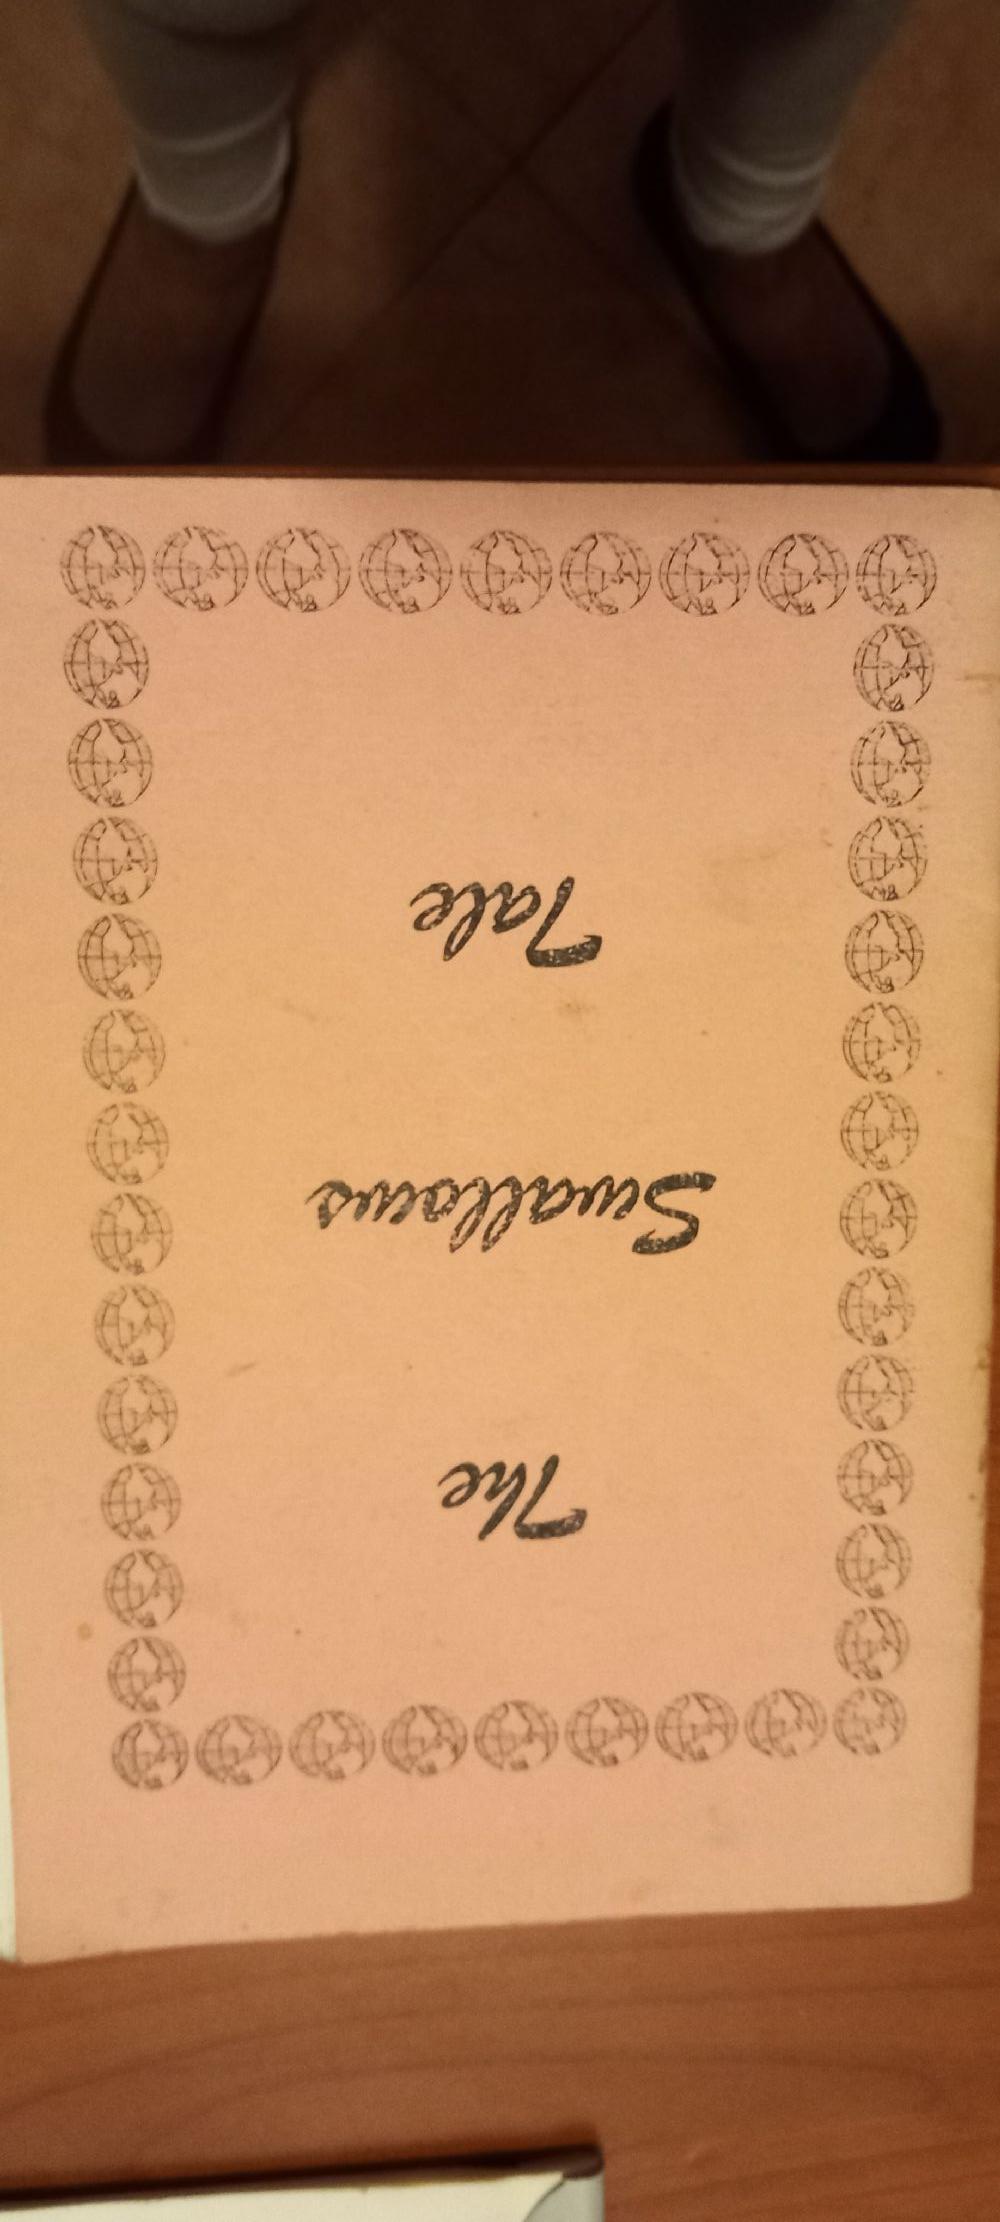 The
Swallows
Tale